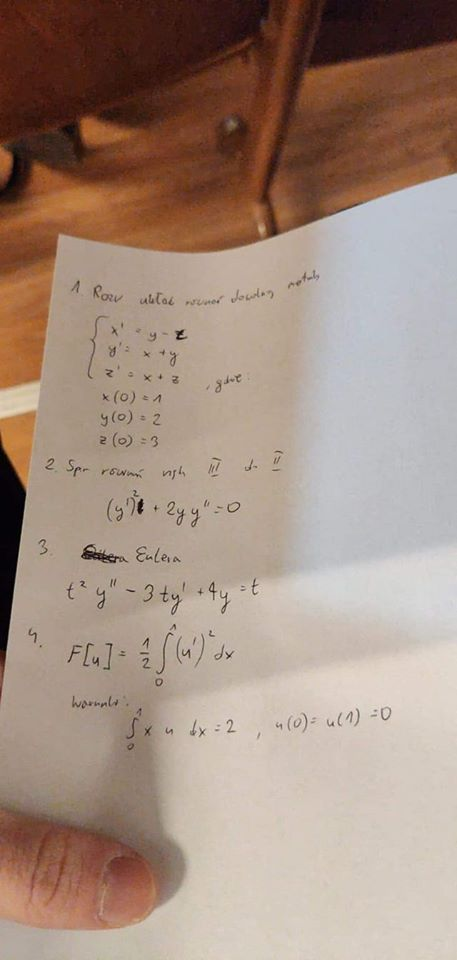 1. Rozw układ równań dowolną metodą
x' = y - z
y' = x + y
z' = x + z , gdzie:
x(0) = 1
y(0) = 2
z(0) = 3
2. Spr równań rzęd III do II
(y')² + 2yy'' = 0
3. Eulera
t² y'' - 3ty' + 4y = t
4. F[u] = 1/2 ∫₀¹ (u')² dx
Warunki:
∫₀¹ x u dx = 2 , u(0) = u(1) = 0